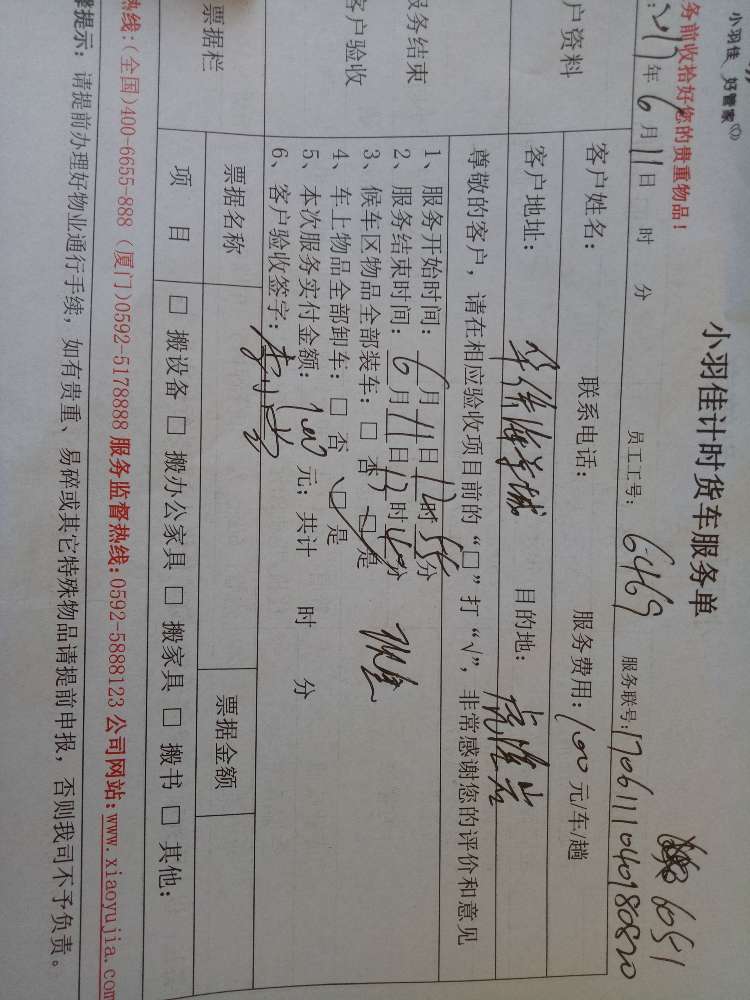 小羽佳 好管家
小羽佳计时货车服务单
6051
务前收拾好您的贵重物品！
2017年6月11日 时 分 员工工号：6469 服务联号：1706111040980820
户资料
客户姓名： 联系电话： 服务费用：100元/车/趟
客户地址： 目的地：
服务结束
客户验收
尊敬的客户，请在相应验收项目前的“□”打“√”，非常感谢您的评价和意见
1、服务开始时间：6月11日12时55分
2、服务结束时间：6月11日13时40分
3、候车区物品全部装车：□ 否 □ 是
4、车上物品全部卸车：□ 否 □ 是
5、本次服务实付金额：100元；共计 时 分
6、客户验收签字：
现金
票据栏
票据名称 票据金额
项 目 □ 搬设备 □ 搬办公家具 □ 搬家具 □ 搬书 □ 其他：
热线：(全国)400-6655-888 (厦门)0592-5178888 服务监督热线：0592-5888123 公司网站：www.xiaoyujia.com
提示：请提前办理好物业通行手续，如有贵重、易碎或其它特殊物品请提前申报，否则我司不予负责。